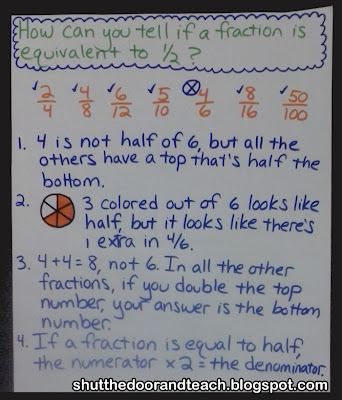 How can you tell if a fraction is
equivalent to 1/2?
✓2/4 ✓4/8 ✓6/12 ✓5/10 ⊗4/6 ✓8/16 ✓50/100
1. 4 is not half of 6, but all the
others have a top that's half the
bottom.
2. 3 colored out of 6 looks like
half, but it looks like there's
1 extra in 4/6.
3. 4+4=8, not 6. In all the other
fractions, if you double the top
number, your answer is the bottom
number.
4. If a fraction is equal to half,
the numerator x2 = the denominator.
shutthedoorandteach.blogspot.com